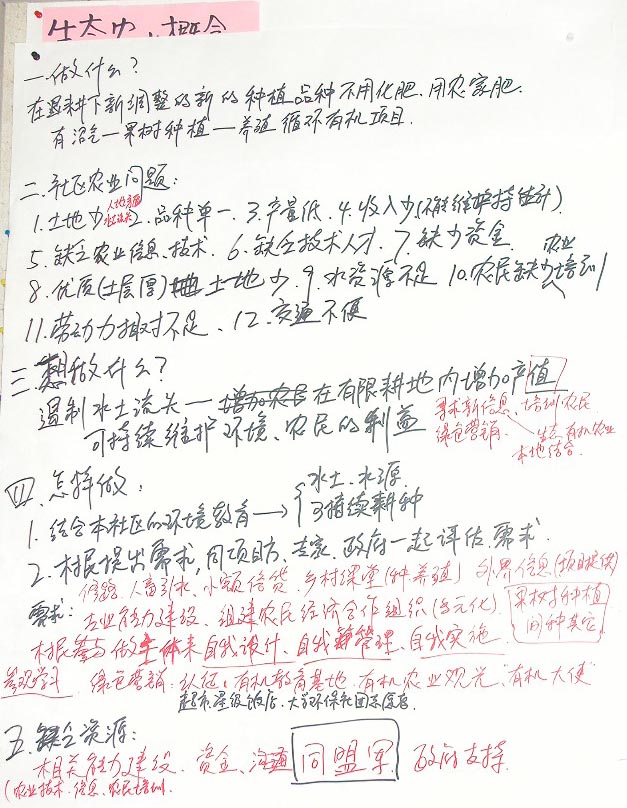 生态农业概念
一.做什么?
在退耕下新调整的新的种植品种不用化肥.用农家肥.
有沼气—果树种植—养殖循环有机项目.
二.社区农业问题:
人地矛盾
水土流失
1.土地少 2.品种单一. 3.产量低. 4.收入少(不能维持生计)
5.缺乏农业信息、技术. 6.缺乏技术人才. 7.缺少资金.
8.优质(土层厚)土地少. 9.水资源不足 10.农民缺少农业培训
11.劳动力相对不足、12.交通不便
三.想做什么?
遏制水土流失—在有限耕地内增加产值
可持续维护环境、农民的利益
寻求新信息、培训农民
绿色营销. 生态有机农业
本地结合.
四.怎样做:
1.结合本社区的环境教育→ 水土、水源
可持续耕种
2.村民提出需求,同项目方、专家、政府一起评估需求.
修路、人畜引水、小额信贷、乡村课堂(种养殖) 外界信息(项目提供)
需求: 专业能力建设、组建农民经济合作组织(多元化)
果树种植
间种其它
村民参与做主体来自我设计、自我管理、自我实施
参观学习 绿色营销:认证,有机教育基地、有机农业观光"有机大使"
超市、星级饭店、大学环保社团志愿者.
五.缺乏资源:
相关能力建设、资金、沟通 同盟军 政府支持.
(农业技术、信息、农民培训.